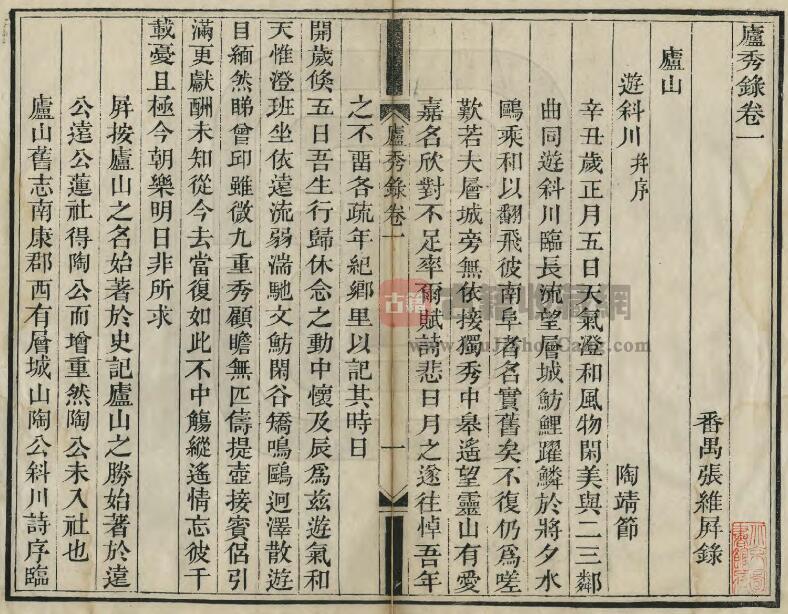 廬秀錄卷一
番禺張維屛錄
廬山
遊斜川 幷序
陶靖節
辛丑歲正月五日天氣澄和風物閑美與二三鄰
曲同遊斜川臨長流望層城魴鯉躍鱗於將夕水
鷗乘和以翻飛彼南阜者名實舊矣不復仍爲嗟
歎若夫層城旁無依接獨秀中皋遙望靈山有愛
嘉名欣對不足率爾賦詩悲日月之遂往悼吾年
之不畱各疏年紀鄉里以記其時日
開歲倏五日吾生行歸休念之動中懷及辰爲茲遊氣和
天惟澄班坐依遠流弱湍馳文魴閑谷矯鳴鷗迥澤散遊
目緬然睇曾邱雖微九重秀顧瞻無匹儔提壺接賓侶引
滿更獻酬未知從今去當復如此不中觴縱遙情忘彼千
載憂且極今朝樂明日非所求
屛按廬山之名始著於史記廬山之勝始著於遠
公遠公蓮社得陶公而增重然陶公未入社也
廬山舊志南康郡西有層城山陶公斜川詩序臨
廬秀錄卷一
一
古籍
古籍收藏網